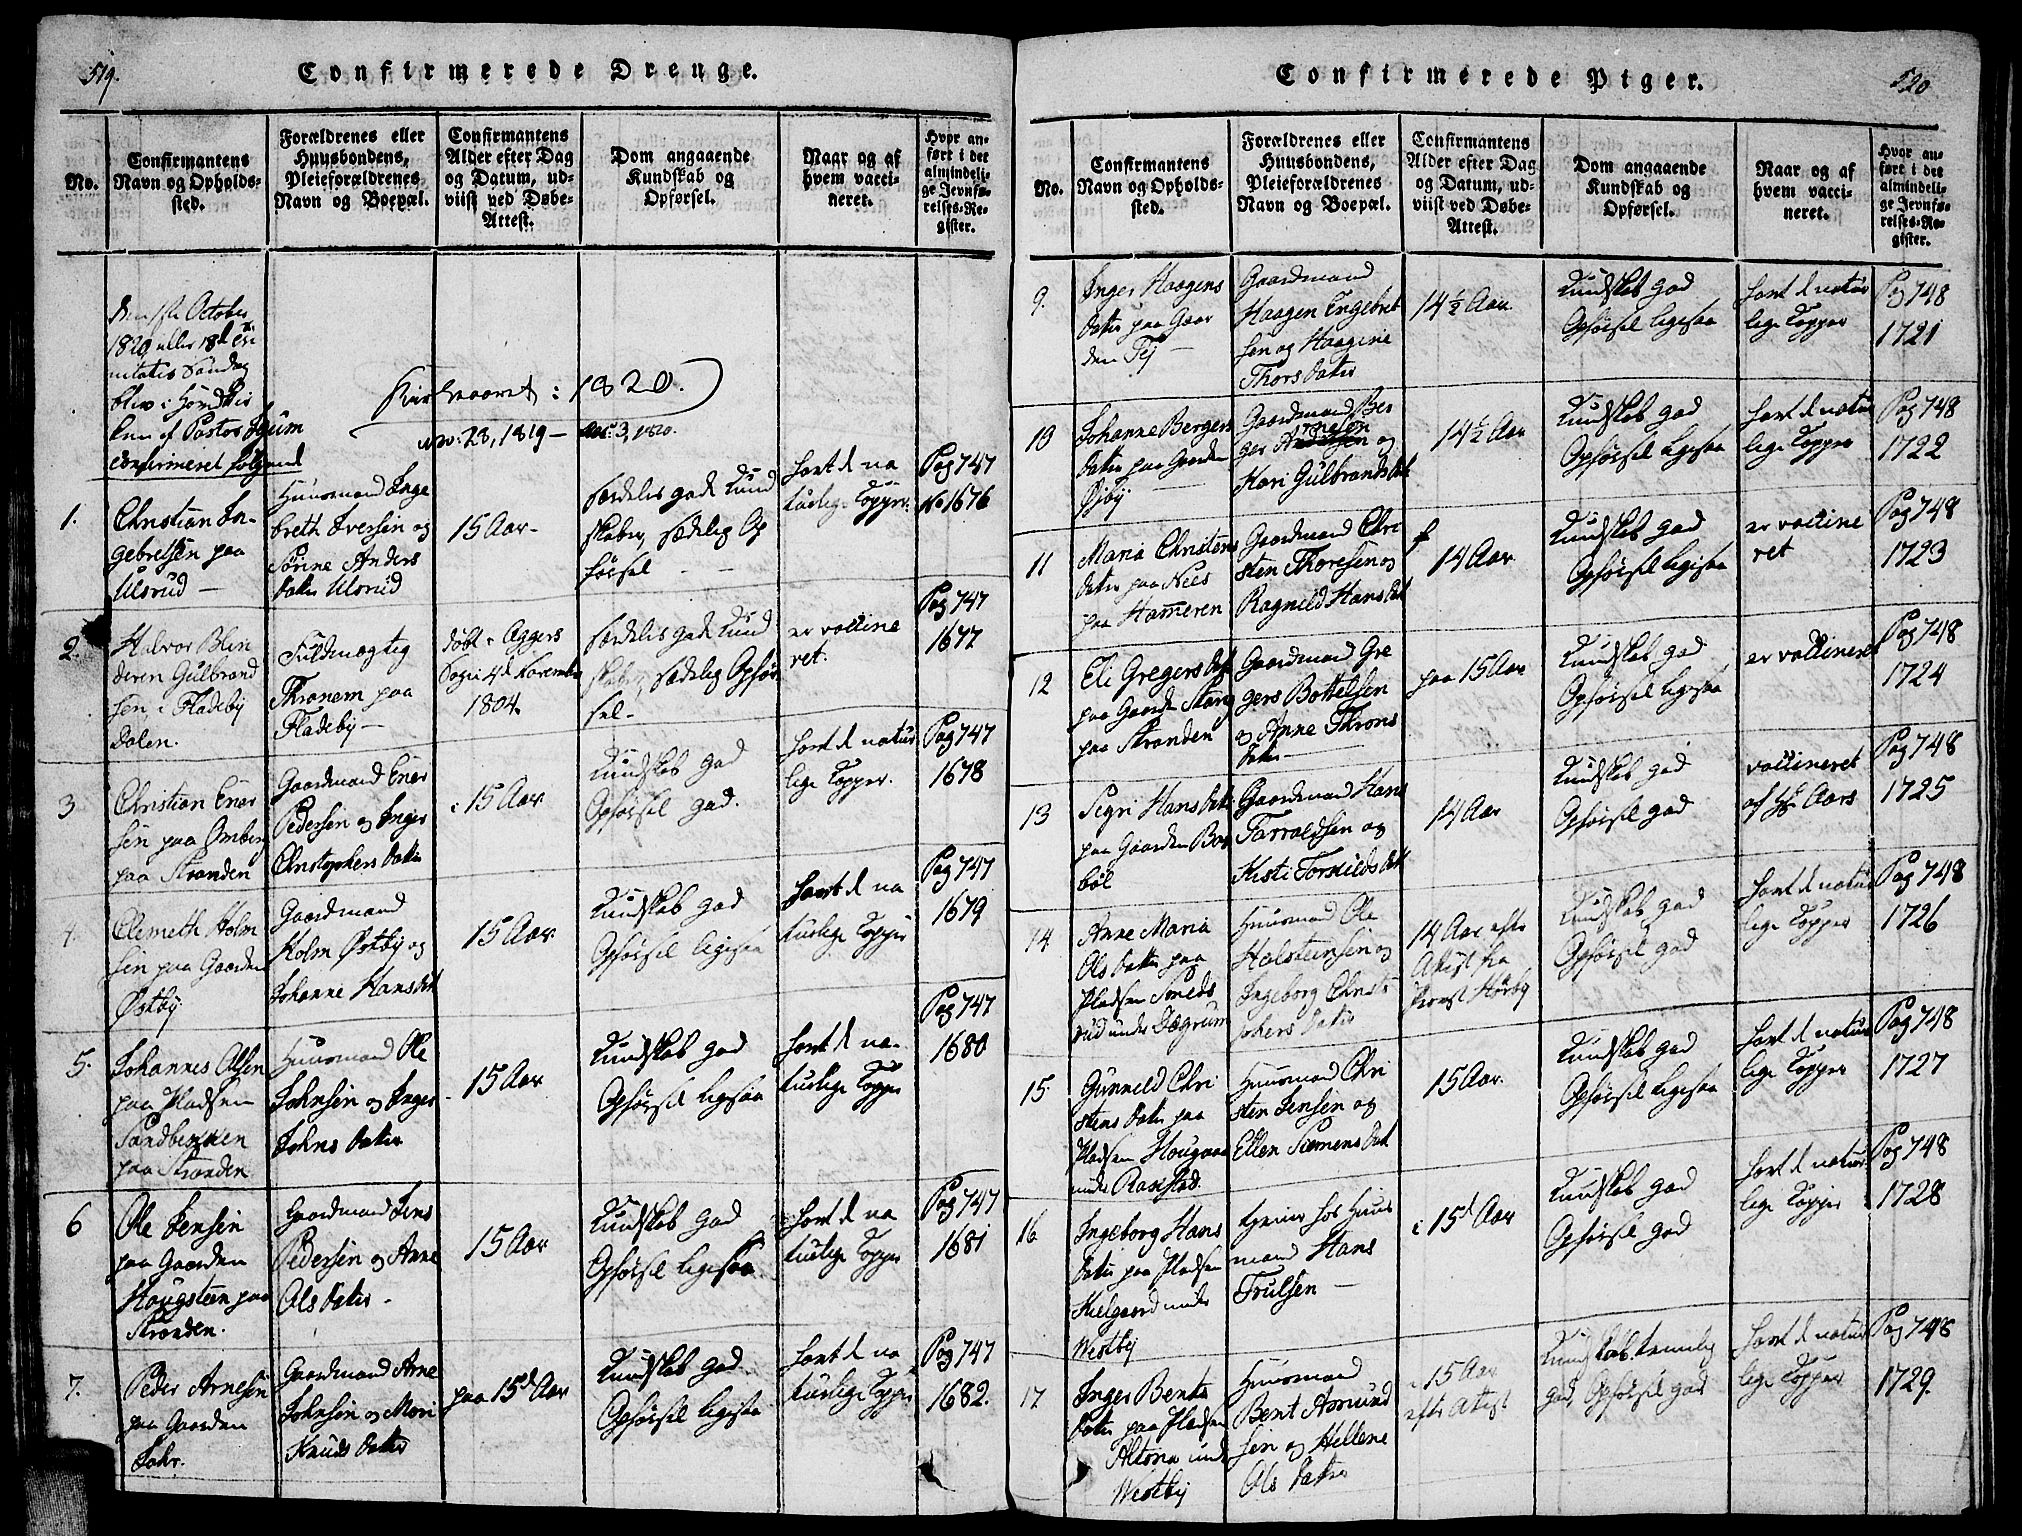 519.
Confirmerede Drenge.
No.
Confirmantens
Navn og Opholds-
sted.
Forældrenes eller
Huusbondens,
Pleieforældrenes
Navn og Boepæl.
Confirmantens
Alder efter Dag
og Datum, ud-
viist ved Døbe-
Attest.
Dom angaaende
Kundskab og
Opførsel.
Naar og af
hvem vacci-
neret.
Hvor an-
ført i det
almindeli-
ge Jevnfø-
relses-Re-
gister.
October
1820 eller 18d
nitatis Søndag
blev i
af Pastor
confirmeret følgende
Kirkeaaret: 1820.
28, 1819 — 3, 1820.
1.
Christian In-
gebretsen paa
Ulsrud —
Huusmand Inge
breth Iversen og
Sørine Anders
datter Ulsrud
15 Aar -
særdeles gode Kund
skaber, sædelig Op
førsel — —
havt d na
turlige Kopper.
Pag 747
No 1676
2.
Halvor Blin
deren Gulbrand
sen, i Fladeby
Dalen.
Fuldmægtig
Thronem paa
Fladeby —
døbt i Aggers
Sogn 4d November
1804.
særdeles gode Kund
skaber, sædelig Opfør
sel -
er vaccine
ret.
Pag 747
1677
3
Christian Ener
sen paa Omberg
paa Stranden
Gaardmand Ener
Pedersen og Inger
Christophers datter
i 15 Aar
Kundskab god
Opførsel god.
havt d natur
lige Kopper.
Pag 747
1678
4.
Clemeth Holm
sen paa Gaarden
Østby
Gaardmand
Holm Østby og
Johanne Hansdat
15 Aar.
Kundskab god
Opførsel ligesaa
havt d na
turlige Kopper
Pag 747
1679
5.
Johannes Olsen
paa Pladsen
Sandbekken
paa Stranden
Huusmand Ole
Johnsen og Inger
Johns datter
15 Aar
Kundskab god
Opførsel ligesaa
havt d na-
turlige Kopper
Pag 747
1680
6
Ole Jensen
paa Gaarden
Hougsteen paa
Stranden.
Gaardmand Jens
Pedersen og Anne
Ols datter -
15 Aar
Kundskab god
Opførsel ligesaa
havt d na
turlige Kopper
Pag 747
1681
7.
Peder Arnesen
paa Gaarden
Gaardmand Arne
Johnsen og Mari
Knuds datter
paa 15d Aar
Kundskab god
Opførsel ligesaa
havt d na
turlige Kopper
Pag 747
1682.
520
Confirmerede Piger.
No.
Confirmantens
Navn og Opholds-
sted.
Forældrenes eller
Huusbondens,
Pleieforældrenes
Navn og Boepæl.
Confirmantens
Alder efter Dag
og Datum, ud-
viist ved Døbe-
Attest.
Dom angaaende
Kundskab og
Opførsel.
Naar og af
hvem vacci-
neret.
Hvor an-
ført i det
almindeli-
ge Jevnfø-
relses-Re-
gister.
9.
Inger Haagens
datter paa Gaar
den Tej —
Gaardmand
Haagen Engebret
sen og Haagine
Thorsdatter
14½ Aar.
Kundskab god
Opførsel ligesaa
havt d natur
lige Kopper
Pag 748
1721
10
Johanne Bergers
datter paa Gaarden
Øjeby.
Gaardmand Ber
ger Arnesen og
Kari Gulbrandsdat
14½ Aar
Kundskab god
Opførsel ligesaa
havt d natur
lige Kopper
Pag 748
1722
11
Maria Christens
datter paa Næs
paa Hammeren
Gaardmand Chri
sten Thoresen og
Ragnild Hansdat
14 Aar
Kundskab god
Opførsel ligesaa
er vaccine
ret
Pag 748
1723
12
Eli Gregersdat
paa Gaarden Stang
paa Stranden
Gaardmand Gre
gers Bottelsen
og Anne Throns
datter —
paa 15 Aar
Kundskab god
Opførsel ligesaa
er vaccineret
Pag 748
1724
13
Segri Hansdatter
paa Gaarden Bog
bøl
Gaardmand Hans
Tarraldsen og
Kisti Torkildsdat
14 Aar
Kundskab god
Opførsel god
vaccineret
af Hr Aars
Pag 748
1725
14
Anne Maria
Olsdatter paa
Pladsen Smeds
rud under Dægrum
Huusmand Ole
Halsteensen og
Ingeborg Christo
phers datter
14 Aar efter
Attest fra
Provst Hørby
Kundskab god
Opførsel god
havt d natur
lige Kopper
Pag 748
1726
15
Gunneld Chri
stensdatter paa
Pladsen Hougaas
under Ramstad.
Huusmand Chri
sten Jensen og
Ellen Siemensdat
15 Aar.
Kundskab god
Opførsel ligesaa
havt d natur
lige Kopper
Pag 748
1727
16
Ingeborg Hans
datter paa Pladsen
Kielgaard under
Westby
tjener hos Huus
mand Hans
Trulsen —
i 15d Aar
Kundskab god
Opførsel god
havt d natur
lige Kopper
Pag 748
1728
17
Inger Bents
datter paa Pladsen
Altona under
Westby
Huusmand
Bent Asmund
sen og Hellene
Ols datter
i 15 Aar
efter Attest
Kundskab temmelig
god, Opførsel god
havt d natur
lige Kopper
Pag 748
1729.